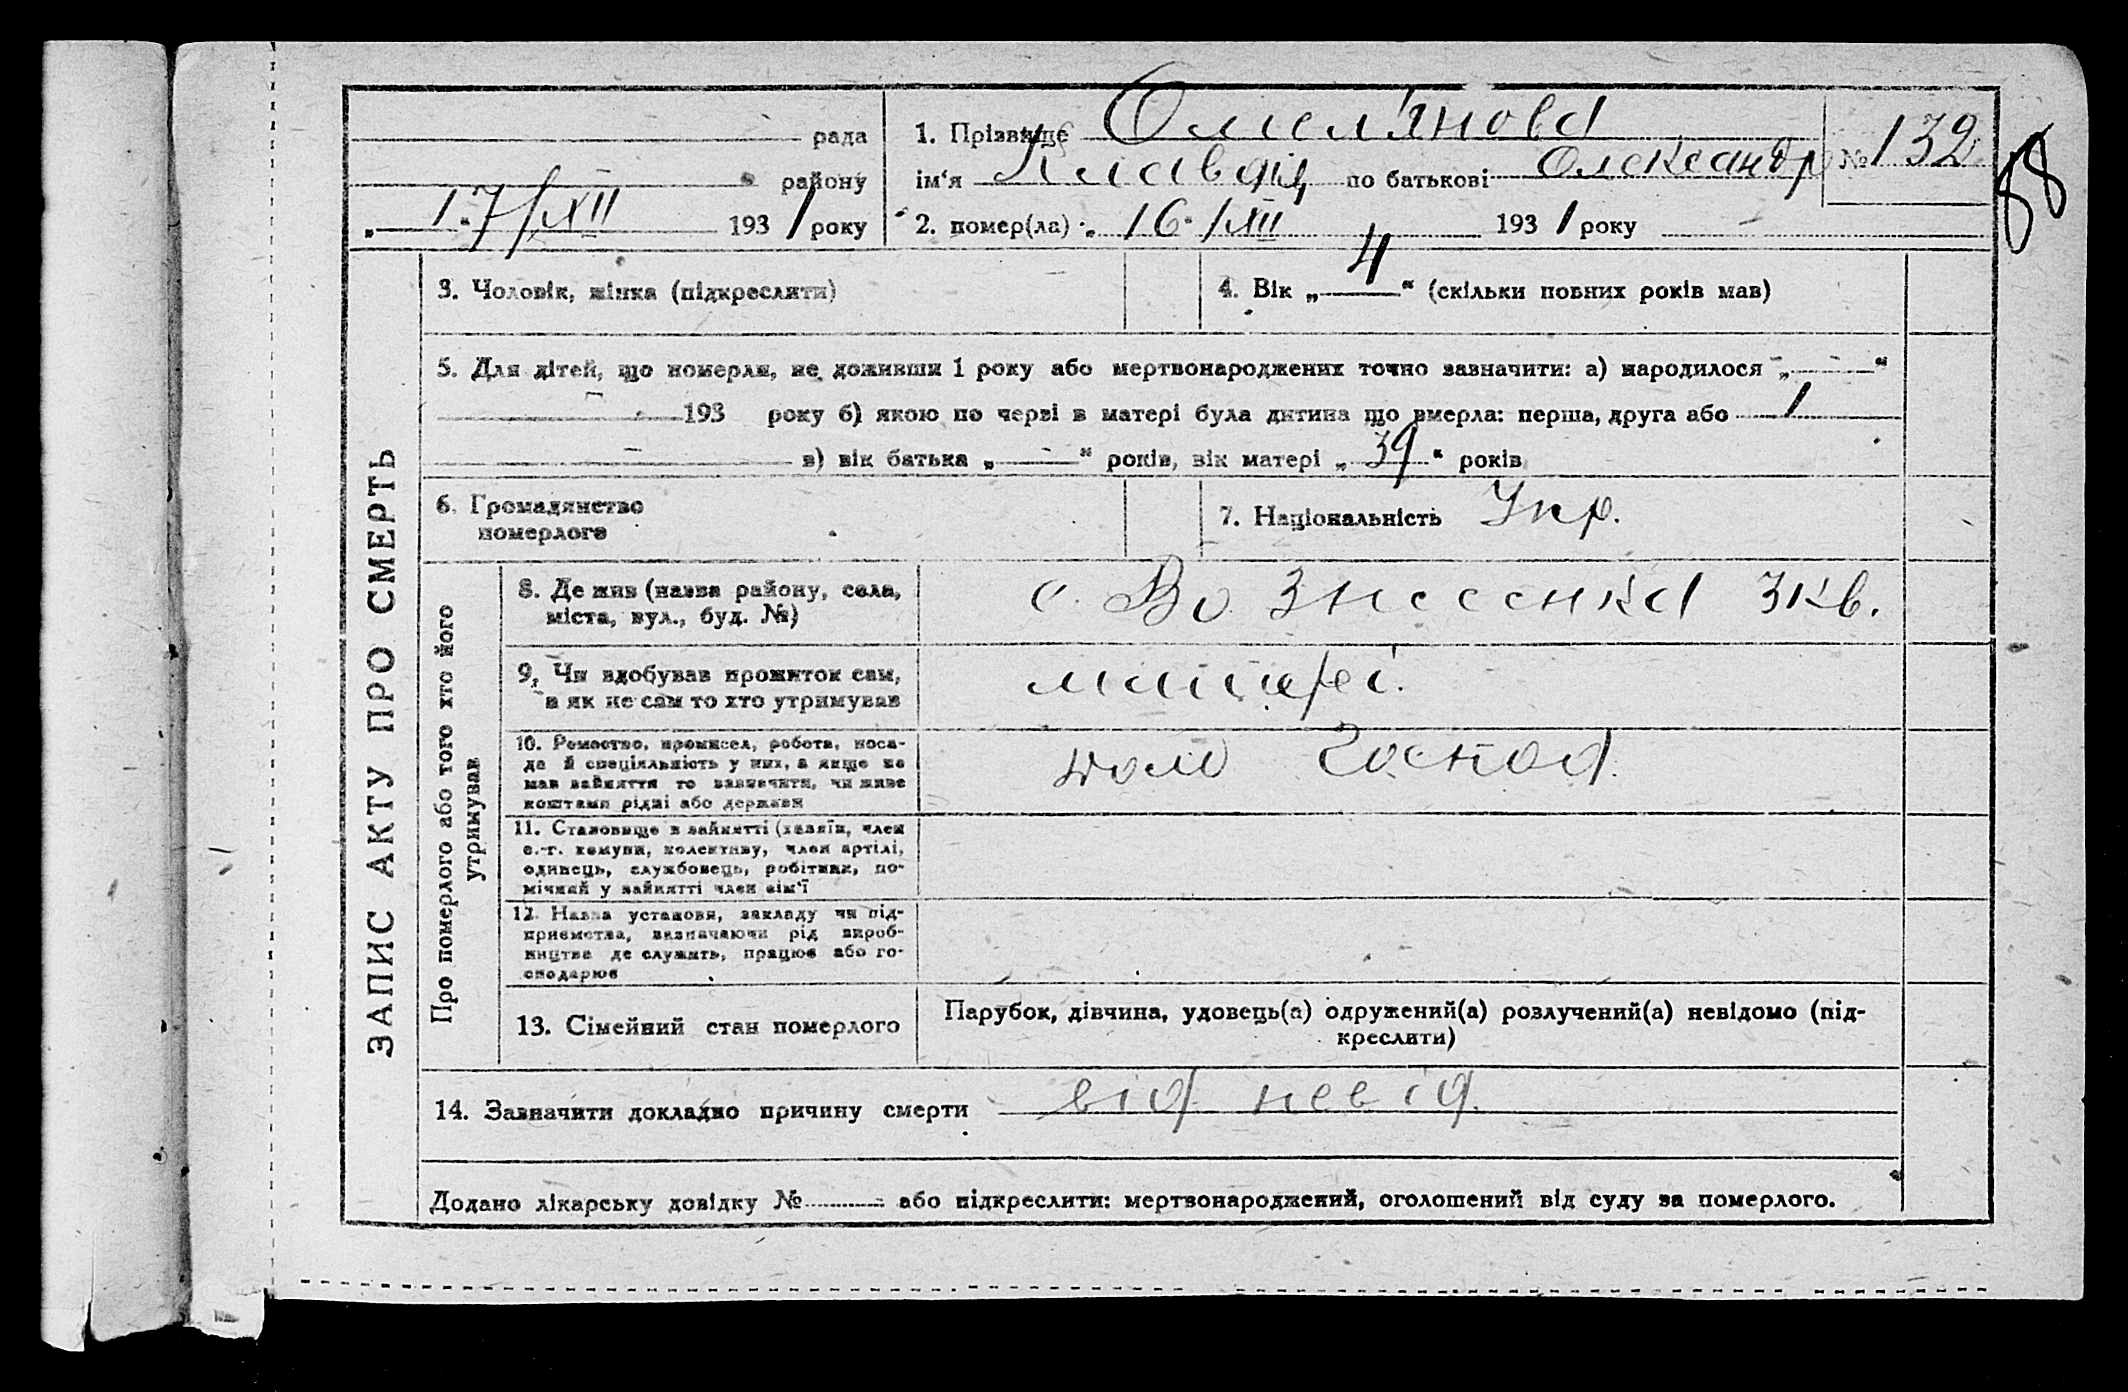 рада
району
„17“/XII 1931 року
1. Прізвище Омел'янова
ім'я Клавдія по батькові Олександр № 132
88
2. помер(ла) „16“/XII 1931 року
ЗАПИС АКТУ ПРО СМЕРТЬ
3. Чоловік, жінка (підкреслити)
4. Вік „4“ (скільки повних років мав)
5. Для дітей, що померли, не доживши 1 року або мертвонароджених точно зазначити: а) народилося „ “
193 року б) якою по черзі в матері була дитина що вмерла: перша, друга або 1
в) вік батька „ “ років, вік матері „39“ років
6. Громадянство
померлого
7. Національність Укр.
Про померлого або того хто його
утримував
8. Де жив (назва району, села,
міста, вул., буд. №)
с. Вознесенка 3 кв.
9. Чи здобував прожиток сам,
а як не сам то хто утримував
матері.
10. Ремество, промисел, робота, поса-
да й спеціяльність у них, а якщо не
мав зайняття то зазначити, чи живе
коштами рідні або держави
дом господ.
11. Становище в зайнятті (хазяїн, член
с.-г. комуни, колективу, член артілі,
одинець, службовець, робітник, по-
мічний у зайнятті член сім'ї
12. Назва установи, закладу чи під-
приємства, визначаючи рід вироб-
ництва де служить, працює або го-
сподарює
13. Сімейний стан померлого
Парубок, дівчина, удовець(а) одружений(а) розлучений(а) невідомо (під-
креслити)
14. Зазначити докладно причину смерти від невід.
Додано лікарську довідку № або підкреслити: мертвонароджений, оголошений від суду за померлого.